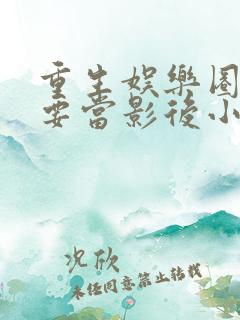 重生娛樂圈
要當影後小
况欣
未任同意禁止转载